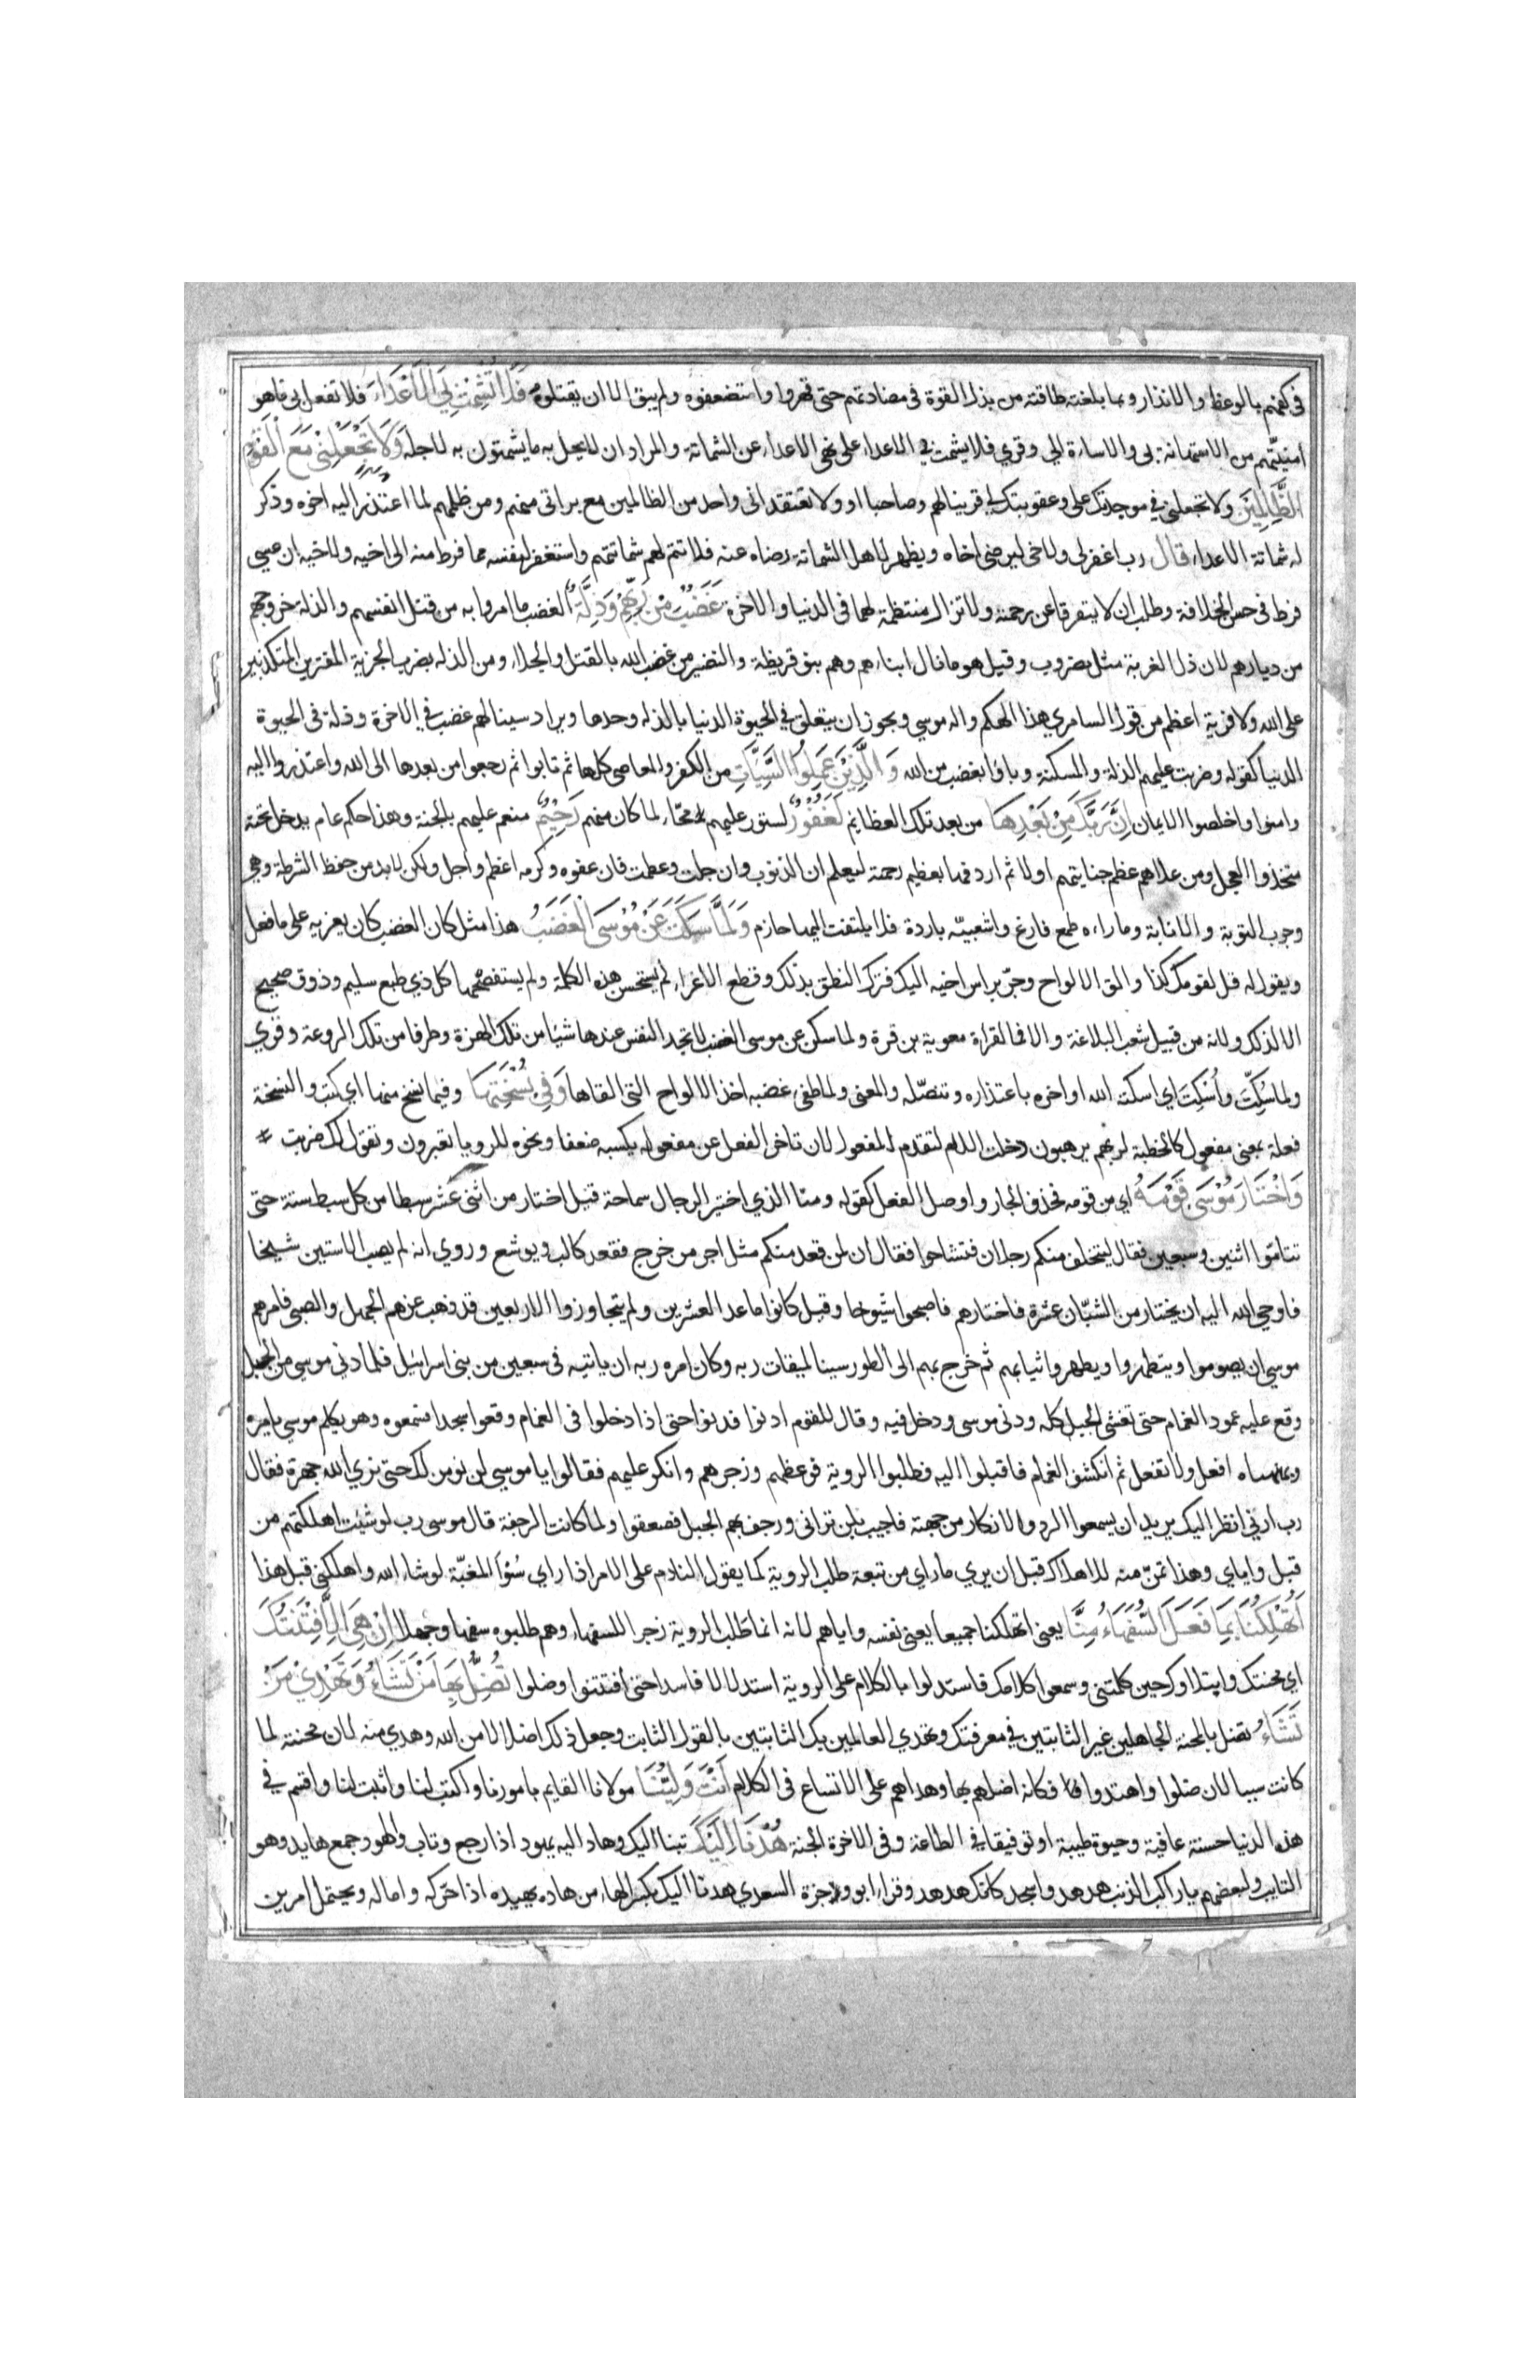 في كفهم بالوعظ والانذار وبما بلغته طاقته من بذل القوة في مضادتهم حتى قهروا واستضعفوه ولم يبق الا ان يقتلوه فَلَا تُشْمِتْ بِيَ الْاَعْدَاءَ فلا تفعل بي ما هو
امنيتهم من الاستهانة بي والاساءة الي وقري فلا يشمت بي الاعداء على نهى الاعداء عن الشماتة والمراد ان لا يحل به ما يشمتون به لاجله وَلَا تَجْعَلْنِي مَعَ الْقَوْمِ
الظَّالِمِينَ ولا تجعلني في موجدتك علي وعقوبتك لي قرينا لهم وصاحبا او ولا تعتقد اني واحد من الظالمين مع براتي منهم ومن ظلمهم لما اعتذر اليه اخوه وذكر
له شماتة الاعداء قَالَ رب اغفر لي ولاخي ليرضى اخاه ويظهر لاهل الشماتة رضاه عنه فلا تتم لهم شماتتهم واستغفر لنفسه مما فرط منه الى اخيه ولاخيه ان عسى
فرط في حسن الخلافة وطلب ان لا يتفرقا عن رحمته ولا تزال منتظمة لهما في الدنيا والاخرة غَضَبٌ مِنْ رَبِّهِمْ وَذِلَّةٌ الغضب ما امروا به من قتل انفسهم والذلة خروجهم
من ديارهم لان ذل الغربة مثل مضروب وقيل هو ما نال ابناءهم وهم بنو قريظة والنضير من غضب الله بالقتل والجلاء ومن الذلة بضرب الجزية المفترين المتكذبين
على الله ولا فرية اعظم من قول السامري هذا الهكم واله موسي ويجوز ان يتعلق في الحيوة الدنيا بالذلة وحدها ويراد سينالهم غضب في الاخرة وذلة في الحيوة
الدنيا كقوله وضربت عليهم الذلة والمسكنة وباؤا بغضب من الله وَالَّذِينَ عَمِلُوا السَّيِّئَاتِ من الكفر والمعاصي كلها ثم تابوا ثم رجعوا من بعدها الى الله واعتذروا اليه
وامنوا واخلصوا الايمان اِنَّ رَبَّكَ مِنْ بَعْدِهَا من بعد تلك العظايم لَغَفُورٌ لستور عليهم محّاء لما كان منهم رَحِيمٌ منعم عليهم بالجنة وهذا حكم عام يدخل تحته
متخذوا العجل ومن عداهم عظم جنايتهم اولا ثم اردفها بعظيم رحمته ليعلم ان الذنوب وان جلت وعظمت فان عفوه وكرمه اعظم واجل ولكن لا بد من حفظ الشريطة وهي
وجوب التوبة والانابة وما وراءه طمع فارغ واشعبيّه باردة فلا يلتفت اليها حازم وَلَمَّا سَكَتَ عَنْ مُوْسَى الْغَضَبُ هذا مثل كان الغضب كان يغريه على ما فعل
ويقول له قل لقومك كذا والق الالواح وجرّ براس اخيه اليك فترك النطق بذلك وقطع الاغراء لم يستحسن هذه الكلمة ولم يستفصحها كل ذي طبع سليم وذوق صحيح
الا لذلك ولانه من قبيل شعب البلاغة والا فما لقراة معوية بن قرة ولما سكن عن موسى الغضب لا تجد النفس عندها شيا من تلك الهزة وطرفا من تلك الروعة وقري
ولما سُكِّتَ وأُسْكِتَ اي اسكته الله او اخوه باعتذاره وتنصّله والمعنى ولما طفئ غضبه اخذ الالواح التي القاها وَفِي نُسْخَتِهَا وفيما نسخ منها اي كتب والنسخة
فعلة بمعنى مفعول كالخطبة لربهم يرهبون دخلت اللام لتقدم المفعول لان تاخر الفعل عن مفعوله يكسبه ضعفا ونحوه للرويا تعبرون وتقول لك ضربت
وَاخْتَارَ مُوْسَى قَوْمَهُ اي من قومه فحذف الجار واوصل الفعل كقوله ومنا الذي اختير الرجال سماحة قيل اختار من اثنى عشر سبطا من كل سبط ستة حتى
تتاموا اثنين وسبعين فقال ليتخلف منكم رجلان فتشاحوا فقال ان لمن قعد منكم مثل اجر من خرج فقعد كالب ويوشع وروي انه لم يصب الا ستين شيخا
فاوحى الله اليه ان يختار من الشبّان عشرة فاختارهم فاصبحوا شيوخا وقيل كانوا ما عدا العشرين ولم يتجاوزوا الاربعين قد ذهب عنهم الجهل والصبى فامرهم
موسي ان يصوموا ويتطهروا ويطهروا ثيابهم ثم خرج بهم الى الطور سينا لميقات ربه وكان امره ربه ان ياتيه في سبعين من بني اسرائيل فلما دنى موسي من الجبل
وقع عليه عمود الغمام حتى تغشى الجبل كله ودنى موسى ودخل فيه وقال للقوم ادنوا فدنوا حتى اذا دخلوا في الغمام وقعوا سجدا فسمعوه وهو يكلم موسي يامره
وينهاه افعل ولا تفعل ثم انكشف الغمام فاقبلوا اليه فطلبوا الروية فوعظهم وزجرهم وانكر عليهم فقالوا يا موسي لن نومن لك حتى نري الله جهرة فقال
رب ارني انظر اليك يريد ان يسمعوا الرد والانكار من جهته فاجيب بلن تراني ورجف بهم الجبل فصعقوا ولما كانت الرجفة قال موسى رب لو شئت اهلكتهم من
قبل واياي وهذا تمنّ منه للاهلاك قبل ان يري ما راي من تبعة طلب الروية كما يقول النادم على الامر اذا راي سُوْأ المغبّة لو شاء الله واهلكني قبل هذا
اَتُهْلِكُنَا بِمَا فَعَلَ السُّفَهَاءُ مِنَّا يعني اتهلكنا جميعا يعني نفسه واياهم لانه انما طلب الروية زجرا للسفهاء وهم طلبوه سفها وجهلا اِنْ هِيَ اِلَّا فِتْنَتُكَ
اي محنتك وابتلاوك حين كلمتني وسمعوا كلامك فاستدلوا بالكلام على الروية استدلالا فاسدا حتى افتتنوا وضلوا تُضِلُّ بِهَا مَنْ تَشَاءُ وَتَهْدِيْ مَنْ
تَشَاءُ تضل بالمحنة الجاهلين غير الثابتين في معرفتك وتهدي العالمين بك الثابتين بالقول الثابت وجعل ذلك اضلالا من الله وهدي منه لان محنته لما
كانت سببا لان ضلوا واهتدوا فكانه اضلهم بها وهداهم على الاتساع في الكلام اَنْتَ وَلِيُّنَا مولانا القايم بامورنا واكتب لنا واثبت لنا واقسم في
هذه الدنيا حسنة عافية وحيوة طيبة او توفيقا في الطاعة وفي الاخرة الجنة هُدْنَا اِلَيْكَ تبنا اليك وهاد اليه يهود اذا رجع وتاب والهود جمع هايد وهو
التايب ولبعضهم يا راكب الذنب هد هد واسجد كانك هدهد وقراء ابو وجزة السعدي هدنا اليك بكسر الهاء من هاده يهيده اذا حركه واماله ويحتمل امرين